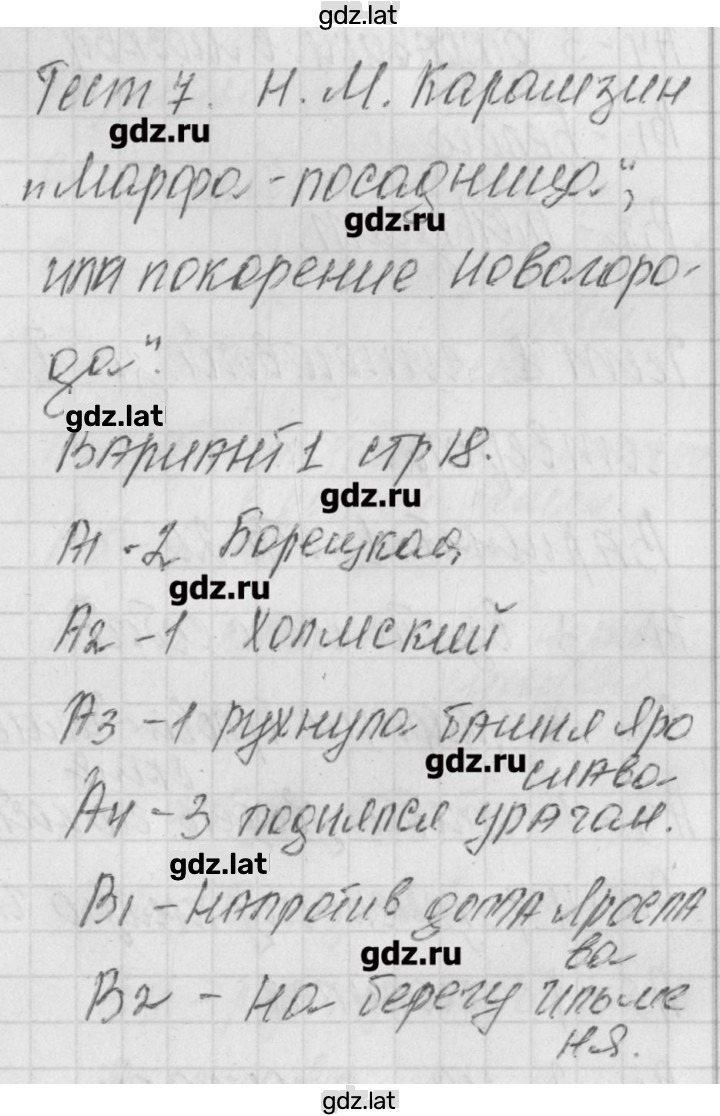 gdz.lat
Тест 7. Н. М. Карамзин
gdz.ru
"Марфа-посадница",
gdz.ru
или покорение Новогоро-
да".
gdz.lat
Вариант 1 стр 18.
gdz.ru
А1 - 2 Борецкая,
gdz.ru
А2 - 1 Холмский
А3 - 1 рухнула башня Яро
gdz.ru
слава
А4 - 3 поднялся ураган.
gdz.lat
В1 - Напротив дома Яросла
gdz.ru
ва
В2 - На берегу Ильме
ня.
gdz.lat